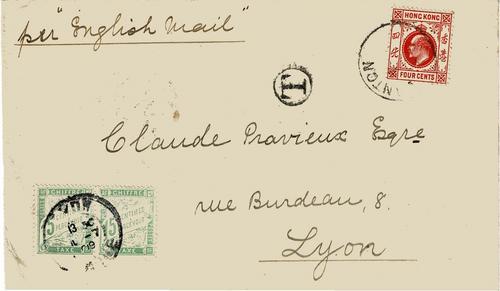 per "English Mail"
HONG KONG
FOUR CENTS
香港
四先
CANTON
T
Claude Pravieux Esqre
rue Burdeau, 8.
Lyon
CHIFFRE CHIFFRE
15
TAXE TAXE
LYON